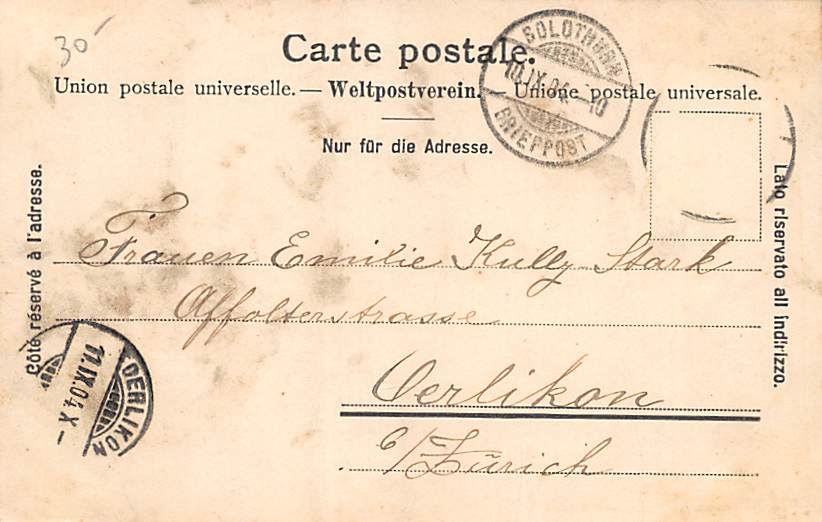 30
Carte postale.
Union postale universelle. — Weltpostverein. — Unione postale universale.
Nur für die Adresse.
SOLOTHURN
10.IX.04.-10
BRIEFPOST
Côté réservé à l'adresse.
Lato riservato all indirizzo.
Frauen Emilie Kully-Stark
Affolternstrasse
Oerlikon
b/Zürich
OERLIKON
11.IX.04.X-